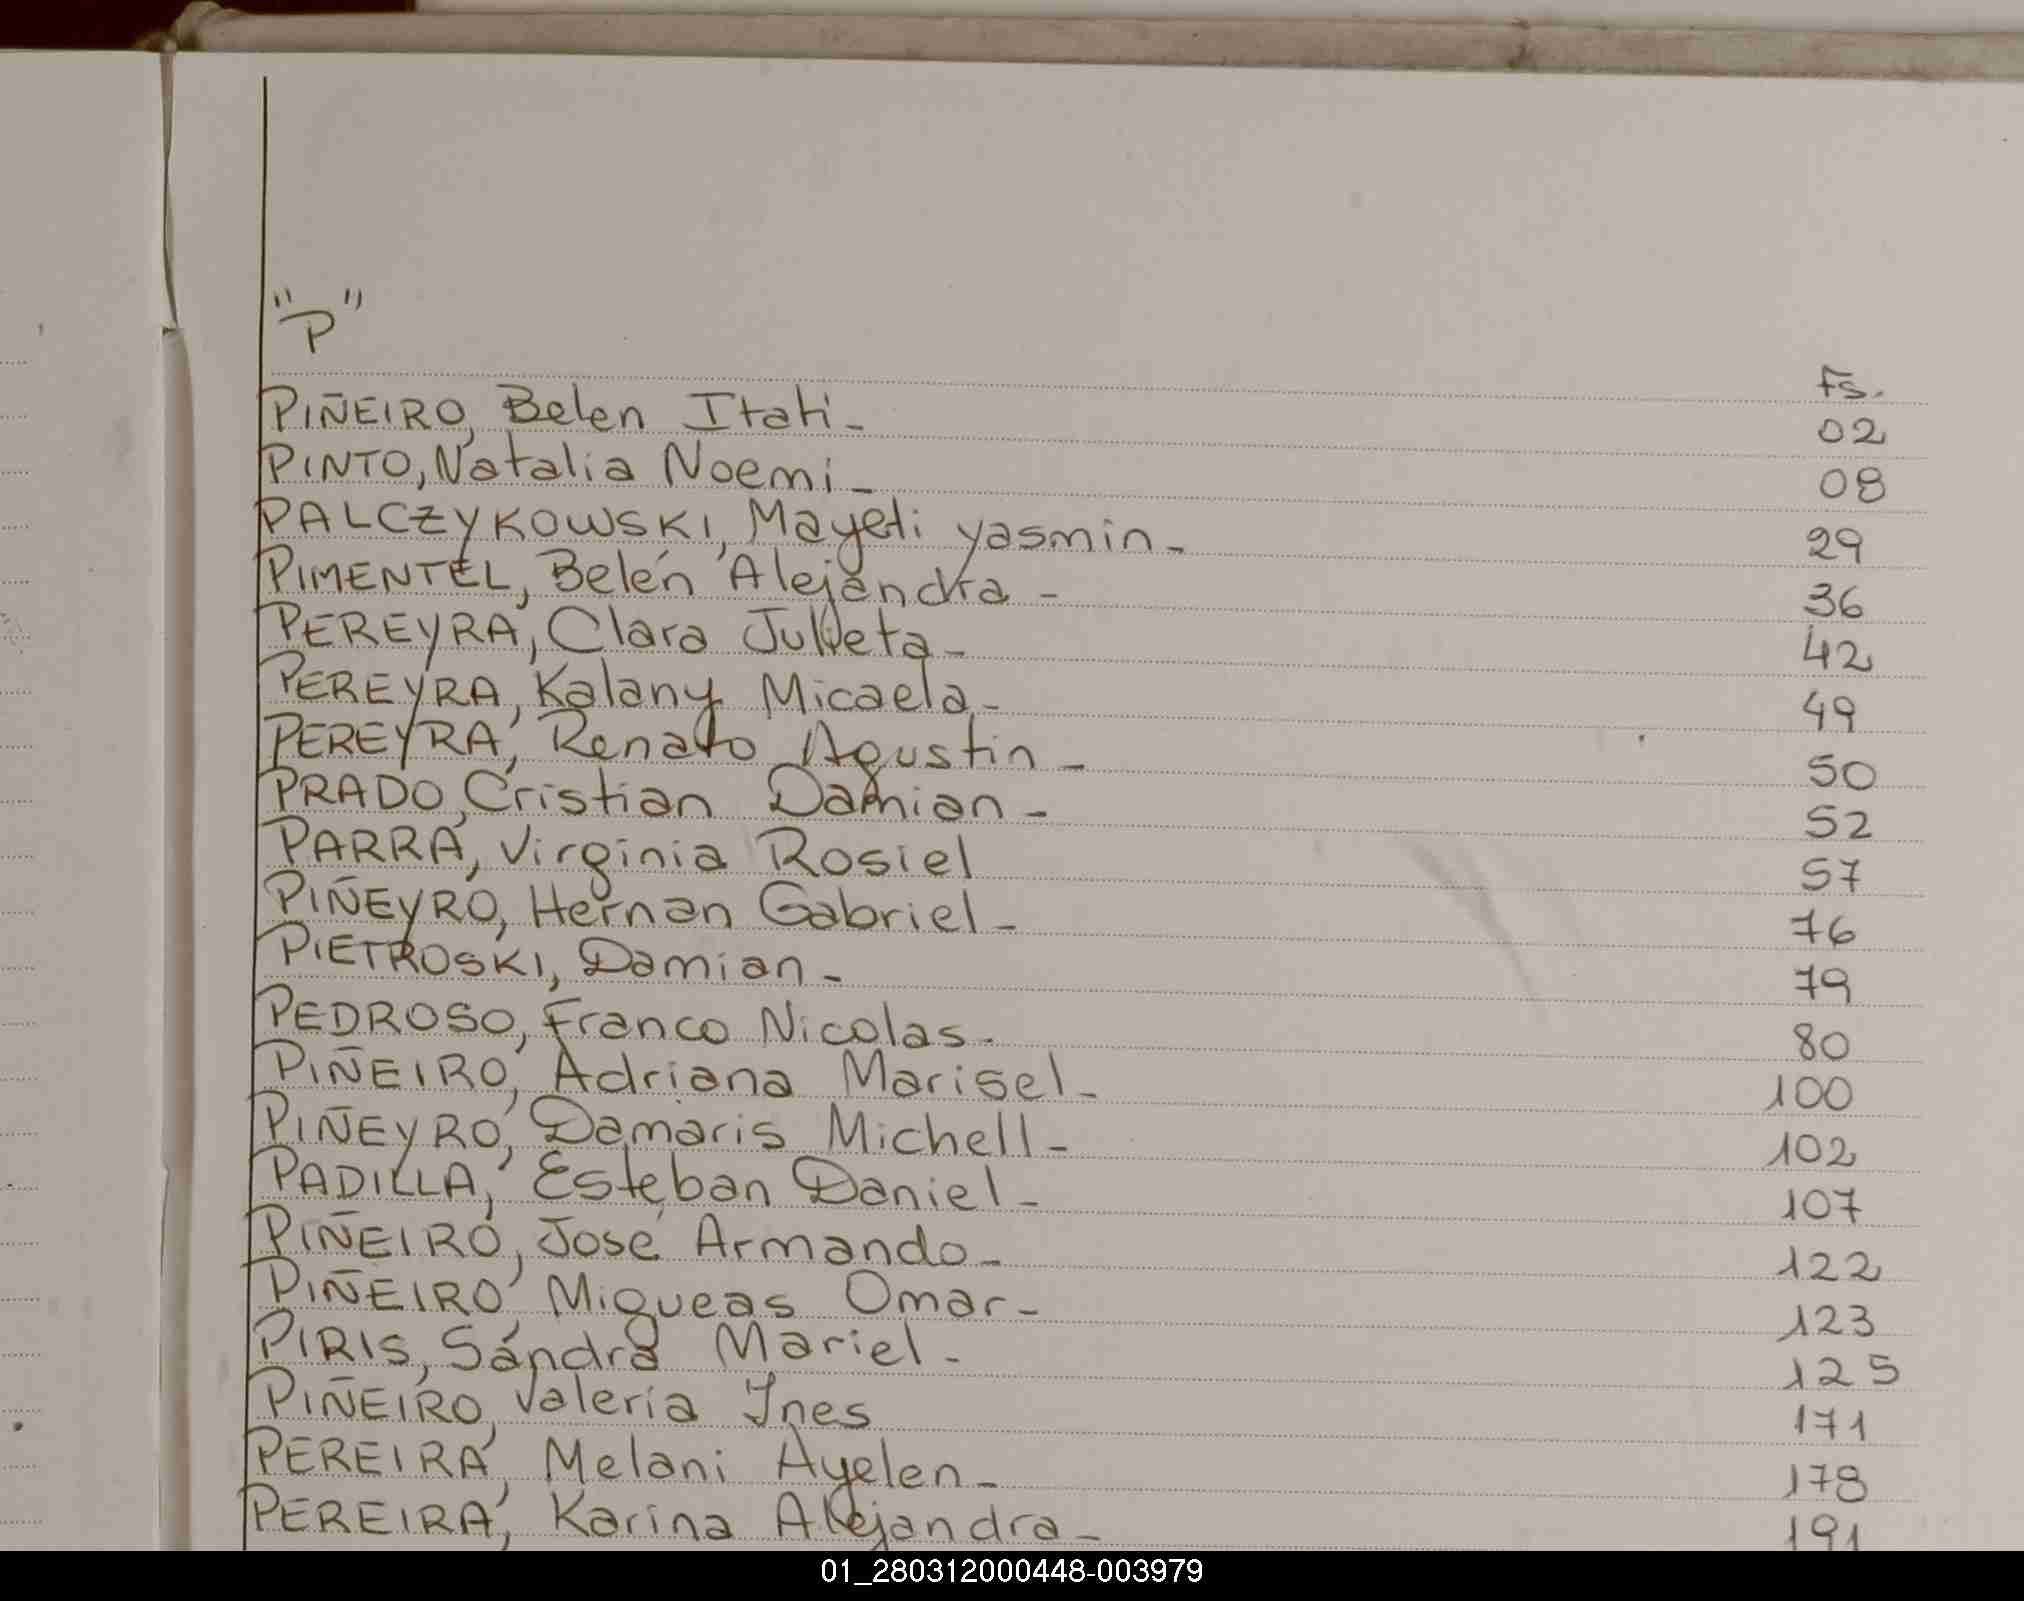 "P"
Fs.
PIÑEIRO, Belen Itati- 02
PINTO, Natalia Noemi- 08
PALCZYKOWSKI, Mayeli yasmin- 29
PIMENTEL, Belén Alejandra - 36
PEREYRA, Clara Julieta- 42
PEREYRA, Kalany Micaela- 49
PEREYRA, Renato Agustin- 50
PRADO, Cristian Damian- 52
PARRA, Virginia Rosiel 57
PIÑEYRO, Hernan Gabriel- 76
PIETROSKI, Damian- 79
PEDROSO, Franco Nicolas- 80
PIÑEIRO, Adriana Marisel- 100
PIÑEYRO, Damaris Michell- 102
PADILLA, Esteban Daniel- 107
PIÑEIRO, José Armando- 122
PIÑEIRO, Miqueas Omar- 123
PIRIS, Sandra Mariel- 125
PIÑEIRO, Valeria Ines 171
PEREIRA, Melani Ayelen- 178
PEREIRA, Karina Alejandra- 191
01_280312000448-003979